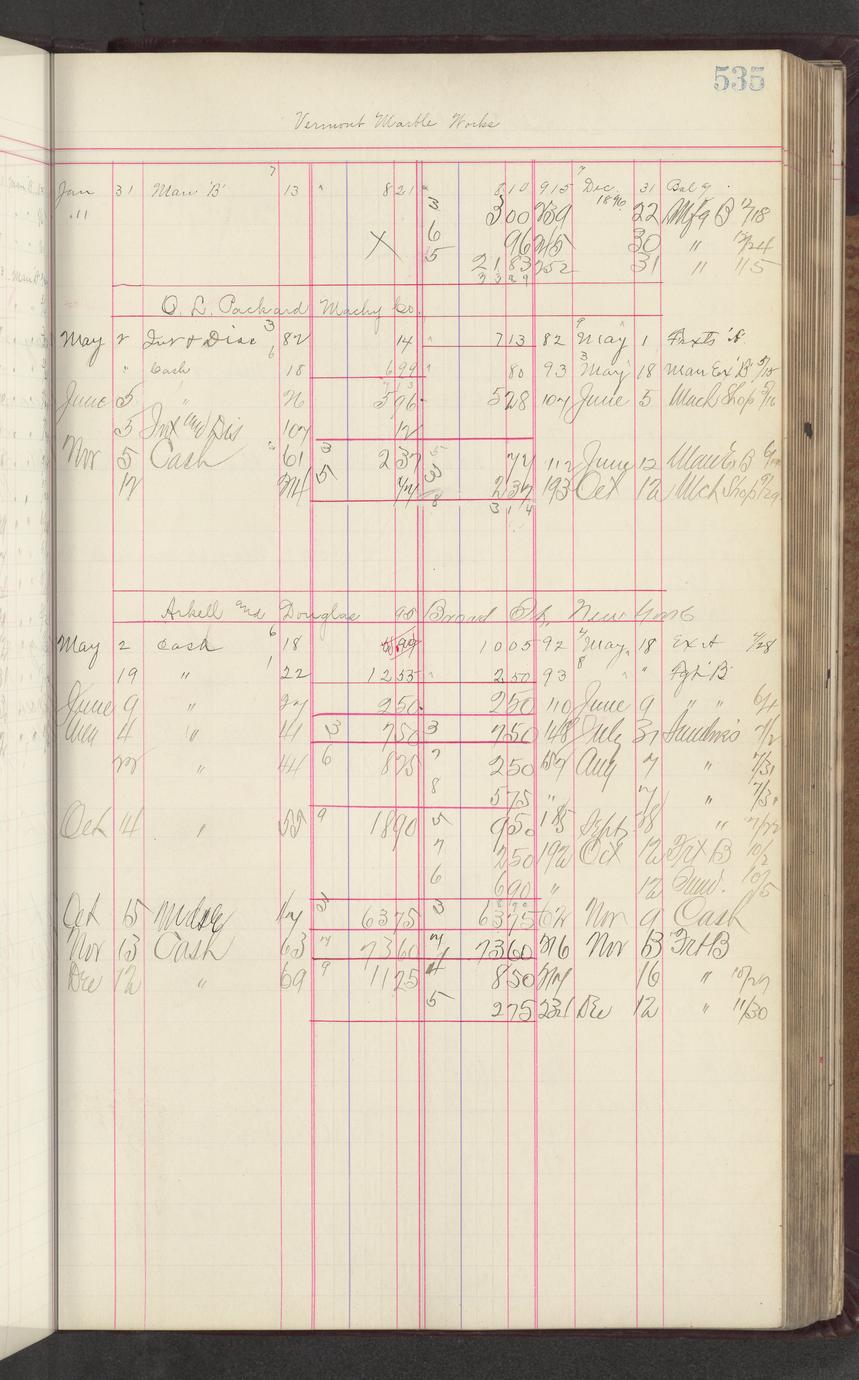 535
Vermont Marble Works
7 7
Jan 31 Man 'B' 13 " 8 21 " 8 10 915 Dec. 31 Bal 9.
" 11 3 300 239 1896 22 Mfg B 12/18
X 6 96 245 30 " 12/24
5 21 83 252 31 " 11 5
O. L. Packard Machy Co.
May 2 Inv & Disc 3 82 14 " 7 13 82 May 1 'A'
" Cash 6 18 6 99 " 80 93 May 18 Man Ex 'B' 5/15
June 5 " 26 5 96 5 28 107 June 5 Mach Shop
5 Inv and Dis 107 12
Nov 5 Cash 61 3 2 37 74 112 June 12 Man Ex B
12 5 3 2 37 193 Oct 12 Mch Shop 9/29
8 3 1 4
Arkell and Douglas 95 Broad St. New York
May 2 Cash 6 18 10 05 92 May 18 Ex A 4/28
19 " 1 22 12 55 " 2 50 93 " " Fgt 'B'
June 9 " 27 2 50 2 50 110 June 9 " " 6/4
4 " 41 3 7 50 3 7 50 148 July 31 7/2
22 " 44 6 8 25 7 2 50 157 Aug 7 " 7/31
8 5 75 " 7 " 7/31
Oct 14 " 55 9 18 90 5 9 50 185 Sept 28 " 7/22
7 2 50 192 Oct 12 Frt B 10/2
6 6 90 " 12 10/5
Oct 15 Mdse 63 75 3 63 75 62 Nov 9 Cash
Nov 13 Cash 63 7 73 60 7 73 60 216 Nov 13 Frt B
Dec 12 " 69 9 11 25 4 8 50 16 " 10/27
5 2 75 231 Dec 12 " 11/30